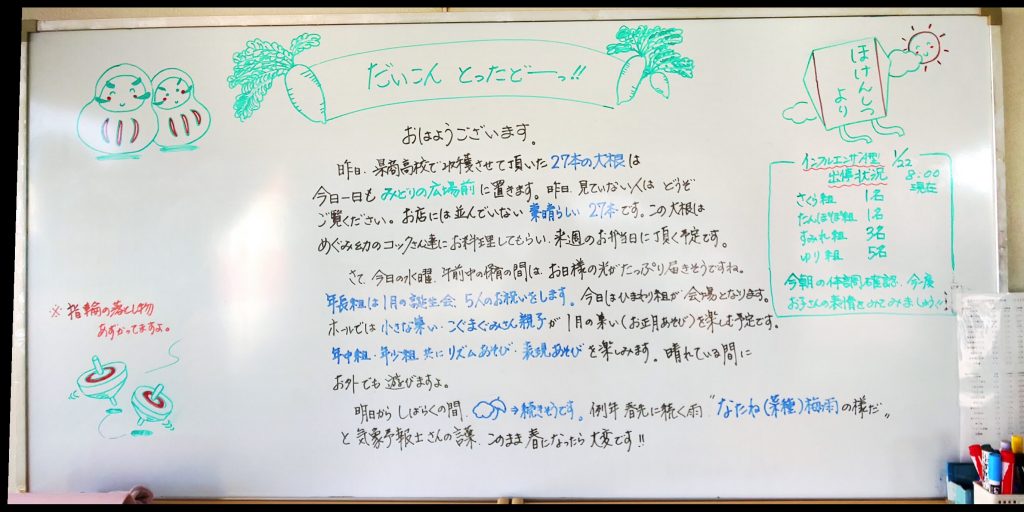 だいこん とったどーっ!!
おはようございます。
昨日、県商高校で収穫させて頂いた 27本の大根は
今日一日も みどりの広場前に置きます。昨日、見ていない人は どうぞ
ご覧ください。お店には並んでいない 素晴らしい 27本です。この大根は
めぐみ幼のコックさん達にお料理してもらい、来週のお弁当に頂く予定です。
さて、今日の水曜、午前中の保育の間は、お日様の光がたっぷり届きそうですね。
年長組は1月の誕生会、5人のお祝いをします。今日はひまわり組が会場となります。
ホールでは 小さな集い・こぐまぐみさん親子が 1月の集い(お正月あそび)を楽しむ予定です。
年中組・年少組 共に リズムあそび・表現あそびを楽しみます。晴れている間に
お外でも 遊びますよ。
明日から しばらくの間、→続きそうです。例年 春先に続く雨 "なたね(菜種)梅雨の様だ"
と 気象予報士さんの言葉、このまま 春になったら 大変です!!
ほけんしつ
より
インフルエンザA型 1/22
出停状況 8:00
現在
さくら組 1名
たんぽぽ組 1名
すみれ組 3名
ゆり組 5名
今朝の体調確認、今一度
お子さんの表情をみてみましょう!!
※ 指輪の落とし物
あずかってますよ。